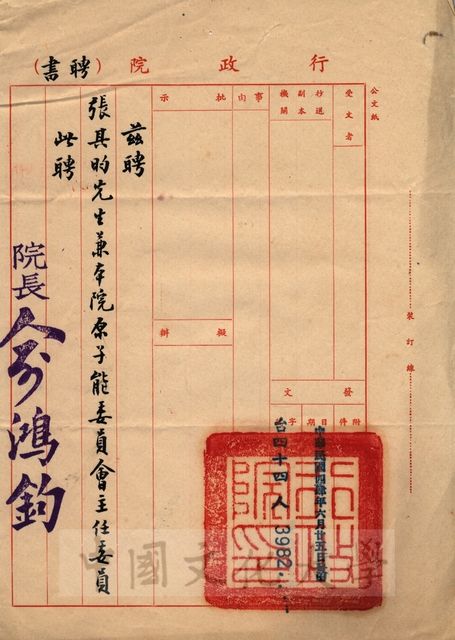 行政院（聘書）
公文紙
受文者
抄送副本機關
事由
批示
擬辦
發文
附件
日期
字
裝訂線
中華民國四肆年六月廿五日
台四十四人 3982
行政院印
茲聘
張其昀先生兼本院原子能委員會主任委員
此聘
院長 俞鴻鈞
中國文化大學